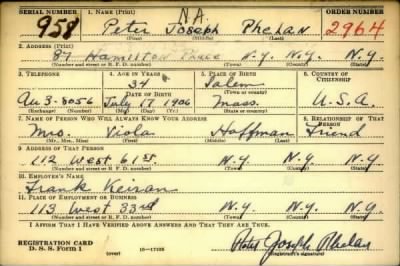 SERIAL NUMBER 1. NAME (Print) ORDER NUMBER
958 Peter Joseph N.A. Phelan 2964
(First) (Middle) (Last)
2. ADDRESS (Print)
87 Hamilton Place N.Y. N.Y. N.Y.
(Number and street or R. F. D. number) (Town) (County) (State)
3. TELEPHONE 4. AGE IN YEARS 5. PLACE OF BIRTH 6. COUNTRY OF CITIZENSHIP
34 Salem
DATE OF BIRTH (Town or county)
Au 3-8056 July 17 1906 Mass. U.S.A.
(Exchange) (Number) (Mo.) (Day) (Yr.) (State or country)
7. NAME OF PERSON WHO WILL ALWAYS KNOW YOUR ADDRESS 8. RELATIONSHIP OF THAT PERSON
Mrs. Viola Hoffman Friend
(Mr., Mrs., Miss) (First) (Middle) (Last)
9. ADDRESS OF THAT PERSON
112 West 61 st. N.Y. N.Y. N.Y.
(Number and street or R. F. D. number) (Town) (County) (State)
10. EMPLOYER'S NAME
Frank Keizan
11. PLACE OF EMPLOYMENT OR BUSINESS
113 West 33rd N.Y. N.Y. N.Y.
(Number and street or R. F. D. number) (Town) (County) (State)
I AFFIRM THAT I HAVE VERIFIED ABOVE ANSWERS AND THAT THEY ARE TRUE.
REGISTRATION CARD
D. S. S. FORM 1 (over) 16—17105 Peter Joseph Phelan
(Registrant's signature)